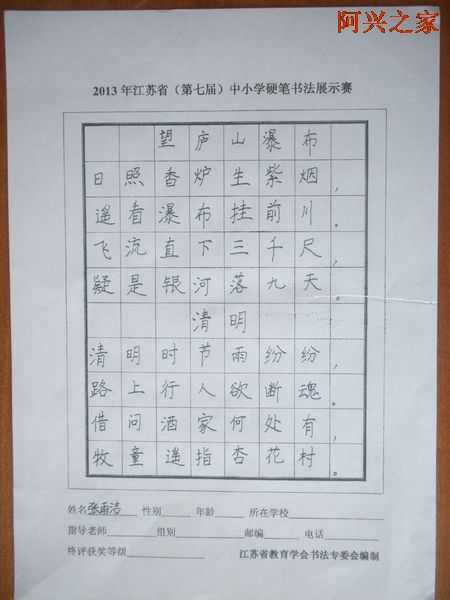 阿兴之家
2013年江苏省（第七届）中小学硬笔书法展示赛
望庐山瀑布
日照香炉生紫烟，
遥看瀑布挂前川。
飞流直下三千尺，
疑是银河落九天。
清明
清明时节雨纷纷，
路上行人欲断魂。
借问酒家何处有，
牧童遥指杏花村。
姓名张雨洁 性别 年龄 所在学校
指导老师 组别 邮编 电话
终评获奖等级 江苏省教育学会书法专委会编制